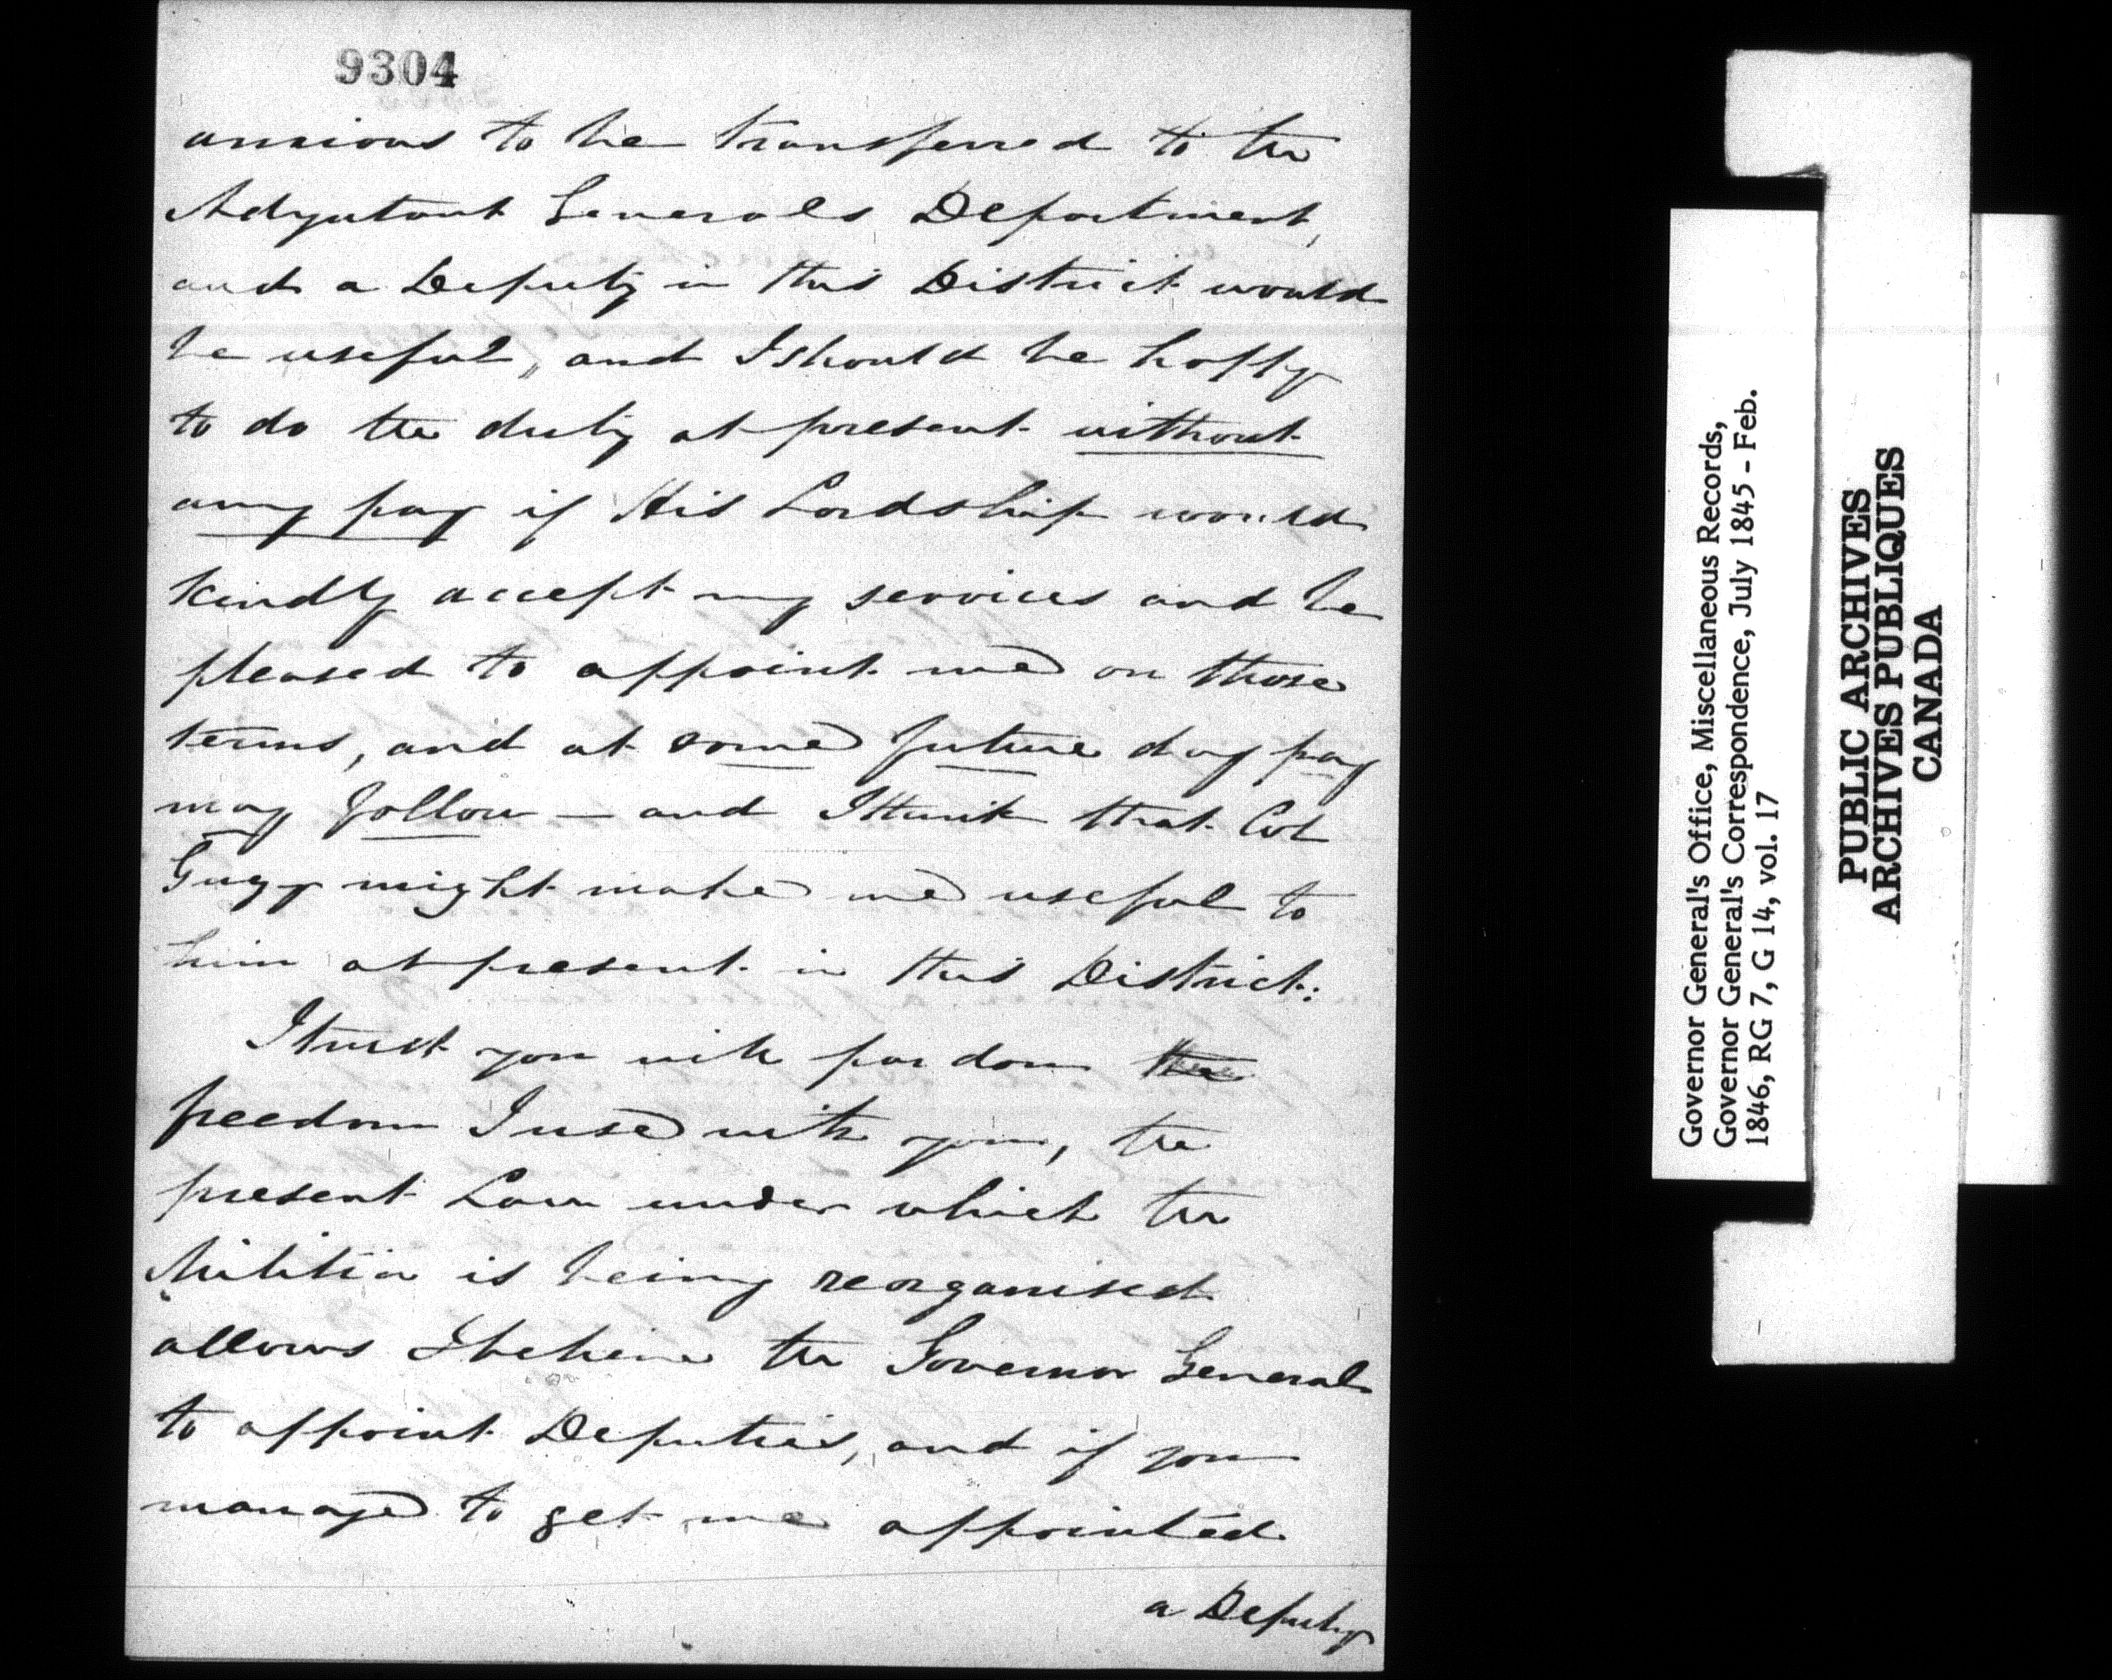 9304
anxious to be transferred to the
Adjutant Generals Department,
and a Deputy in this District would
be useful, and I should be happy
to do the duty at present without
any pay if His Lordship would
kindly accept my services and be
pleased to appoint me on those
terms, and at some future day pay
may follow — and I think that Col
Gugy might make me useful to
him at present in this District:
I trust you will pardon the
freedom I use with you, the
present Law under which the
Militia is being reorganised
allows I believe the Governor General
to appoint Deputies, and if you
managed to get me appointed
a Deputy
Governor General's Office, Miscellaneous Records,
Governor General's Correspondence, July 1845 - Feb.
1846, RG 7, G 14, vol. 17
PUBLIC ARCHIVES
ARCHIVES PUBLIQUES
CANADA